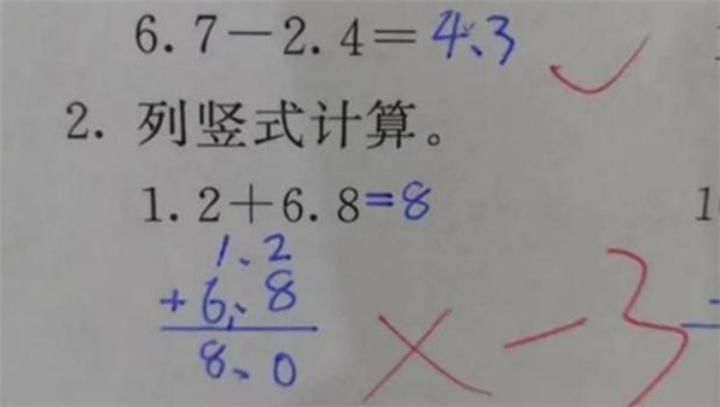 6.7－2.4＝4.3
2. 列竖式计算。
1.2＋6.8=8
1.2
+ 6.8
8.0
× －3